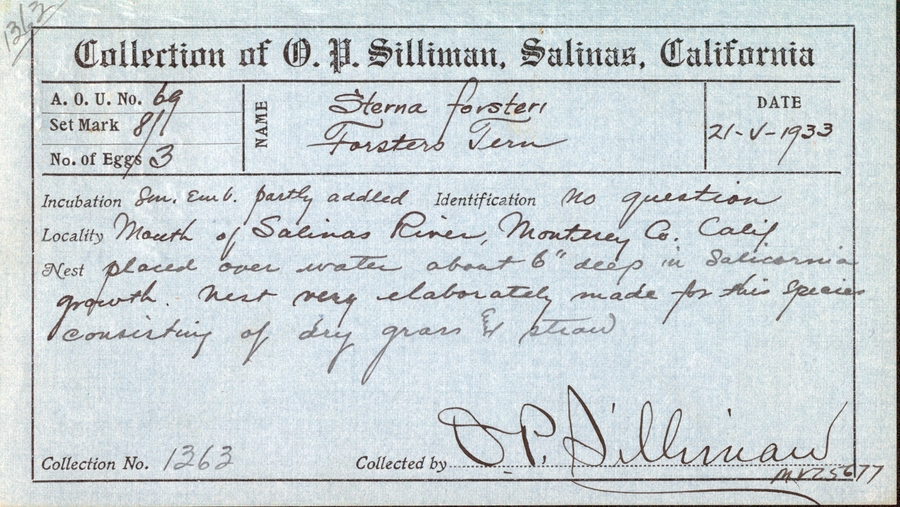 1363
Collection of O. P. Silliman, Salinas, California
A. O. U. No. 69
Set Mark 8/1
No. of Eggs 3
NAME
Sterna forsteri
Forsters Tern
DATE
21-V-1933
Incubation Sm. Emb. partly addled Identification No question
Locality Mouth of Salinas River, Monterey Co. Calif
Nest placed over water about 6" deep in Salicornia
growth. Nest very elaborately made for this species
consisting of dry grass & straw
Collection No. 1363
Collected by O. P. Silliman
MVZ 5677